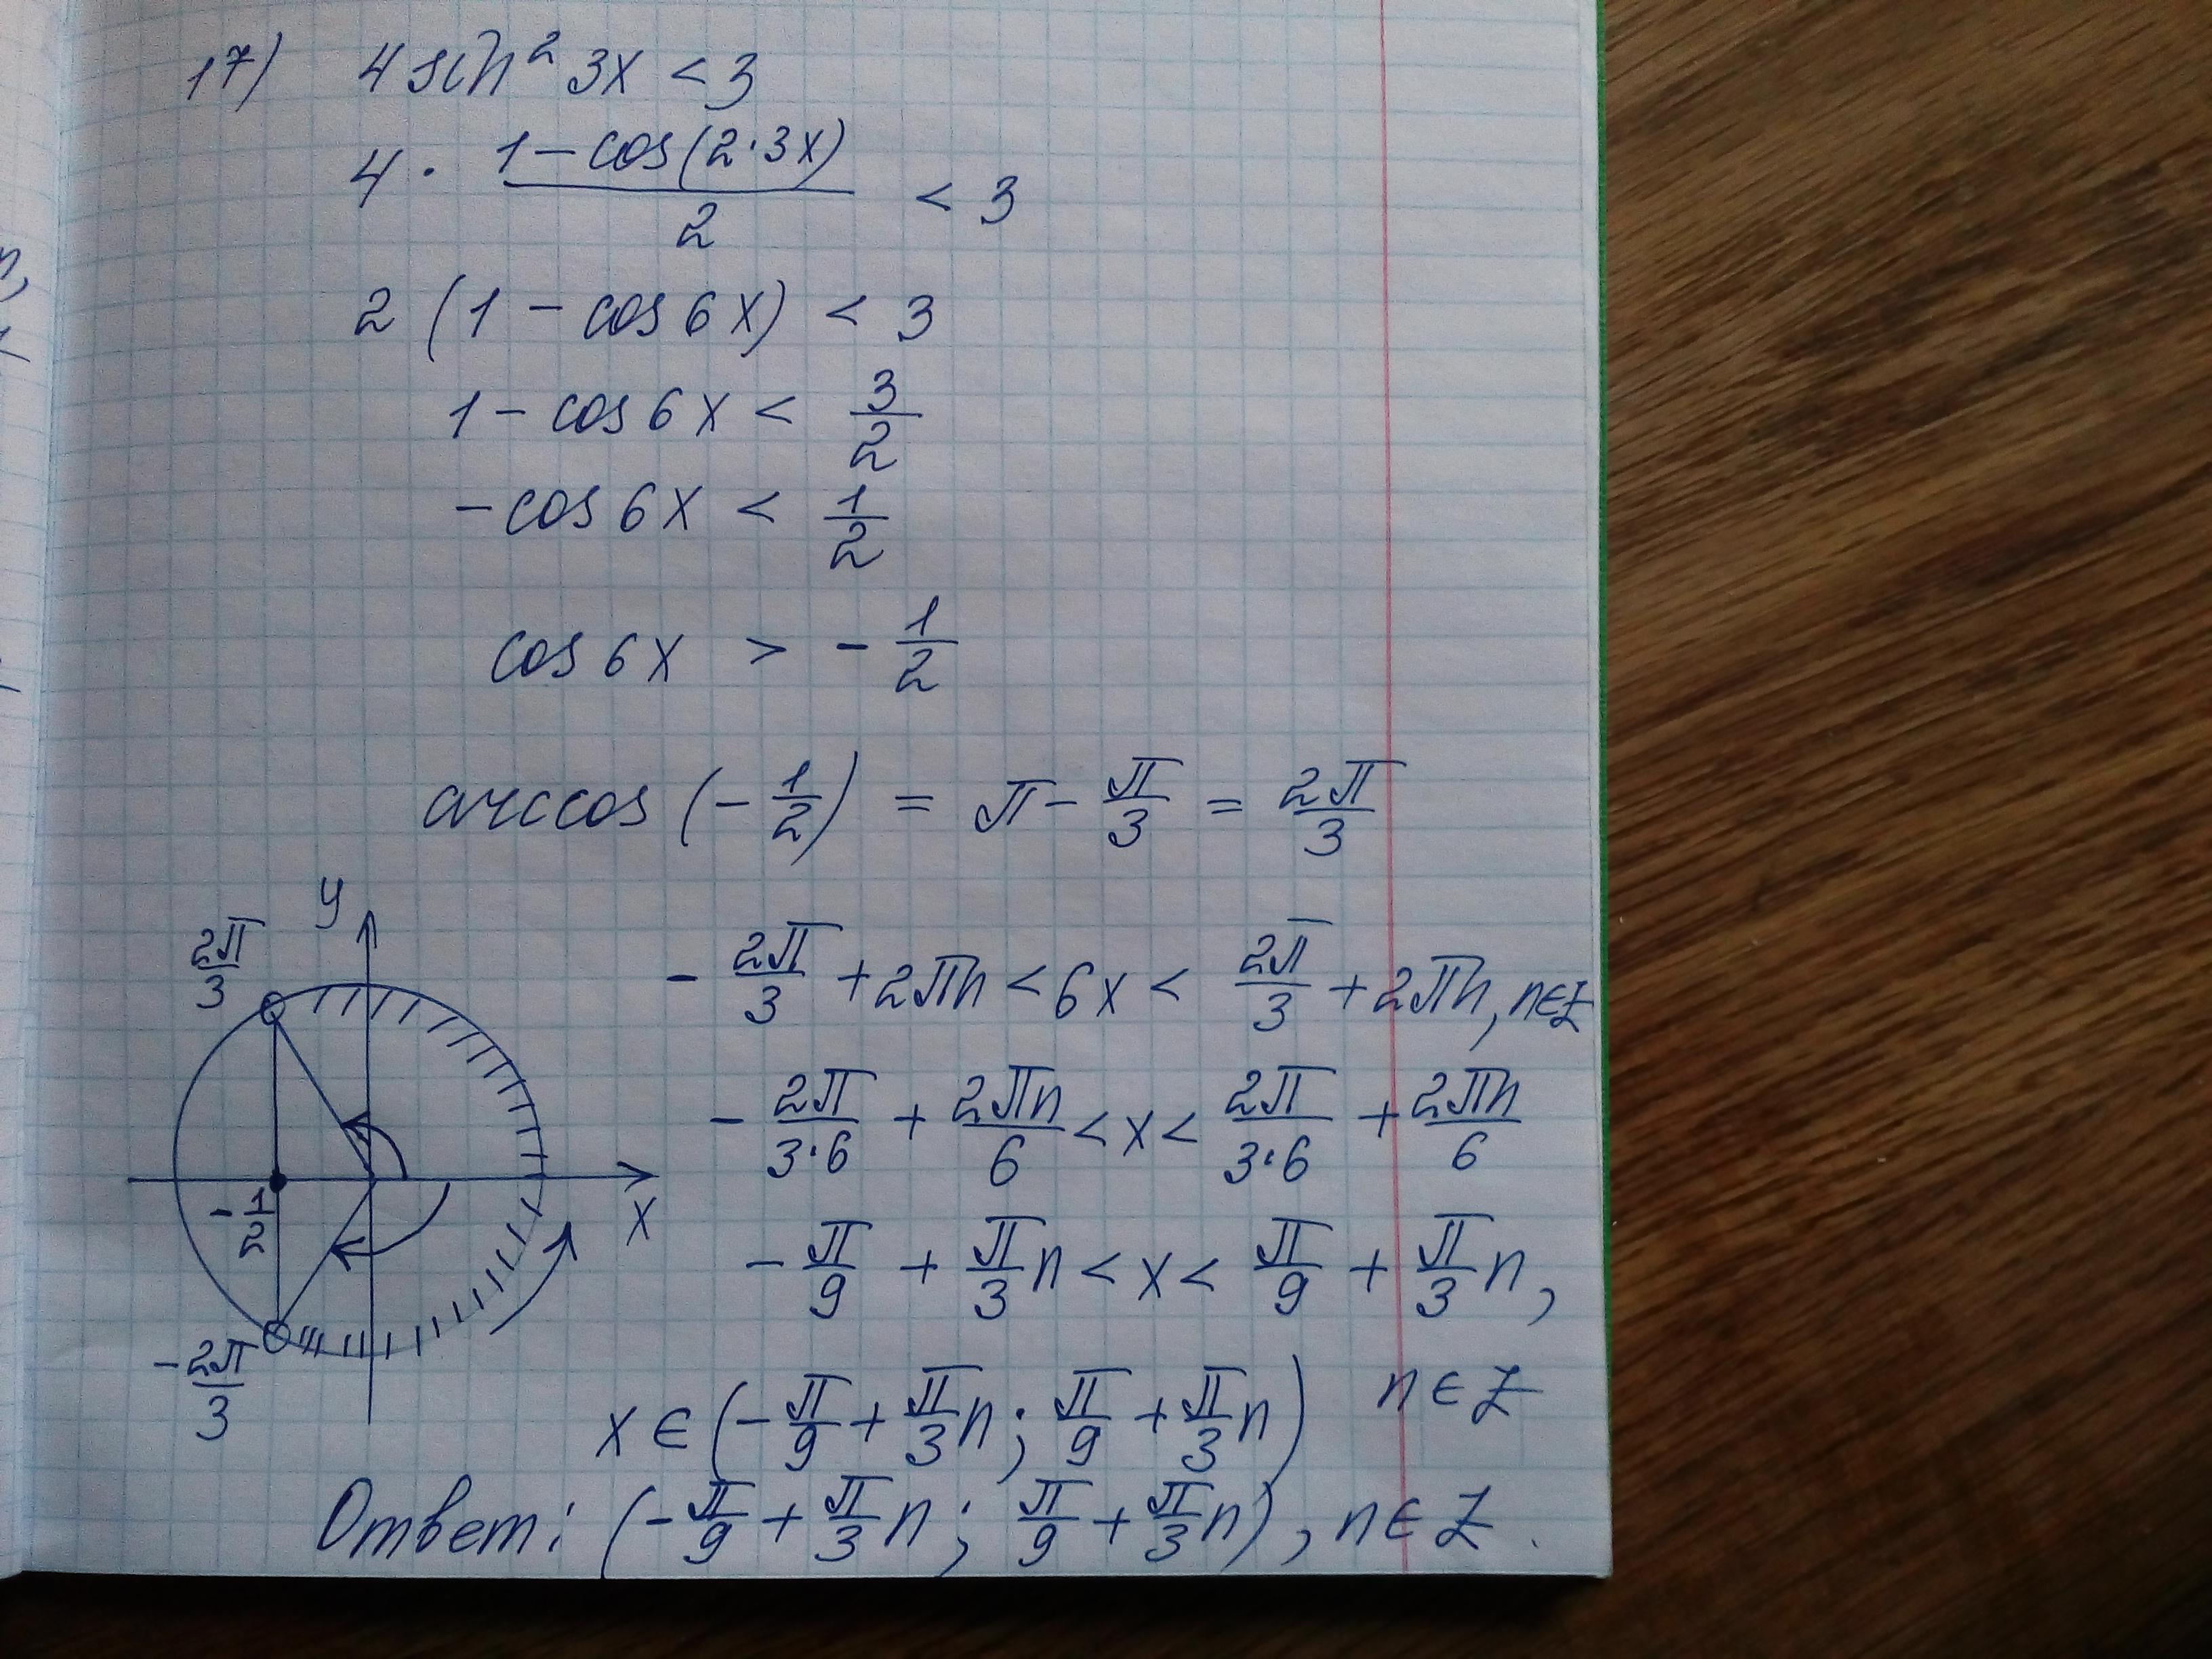 17) 4 sin² 3x < 3
4 · (1 – cos(2·3x))/2 < 3
2 (1 – cos 6x) < 3
1 – cos 6x < 3/2
– cos 6x < 1/2
cos 6x > – 1/2
arccos (– 1/2) = π – π/3 = 2π/3
y
2π/3
– 1/2
x
– 2π/3
– 2π/3 + 2πn < 6x < 2π/3 + 2πn, n∈Z
– 2π/(3·6) + 2πn/6 < x < 2π/(3·6) + 2πn/6
– π/9 + π/3 n < x < π/9 + π/3 n,
n ∈ Z
x ∈ (– π/9 + π/3 n ; π/9 + π/3 n)
Ответ: (– π/9 + π/3 n ; π/9 + π/3 n), n ∈ Z.